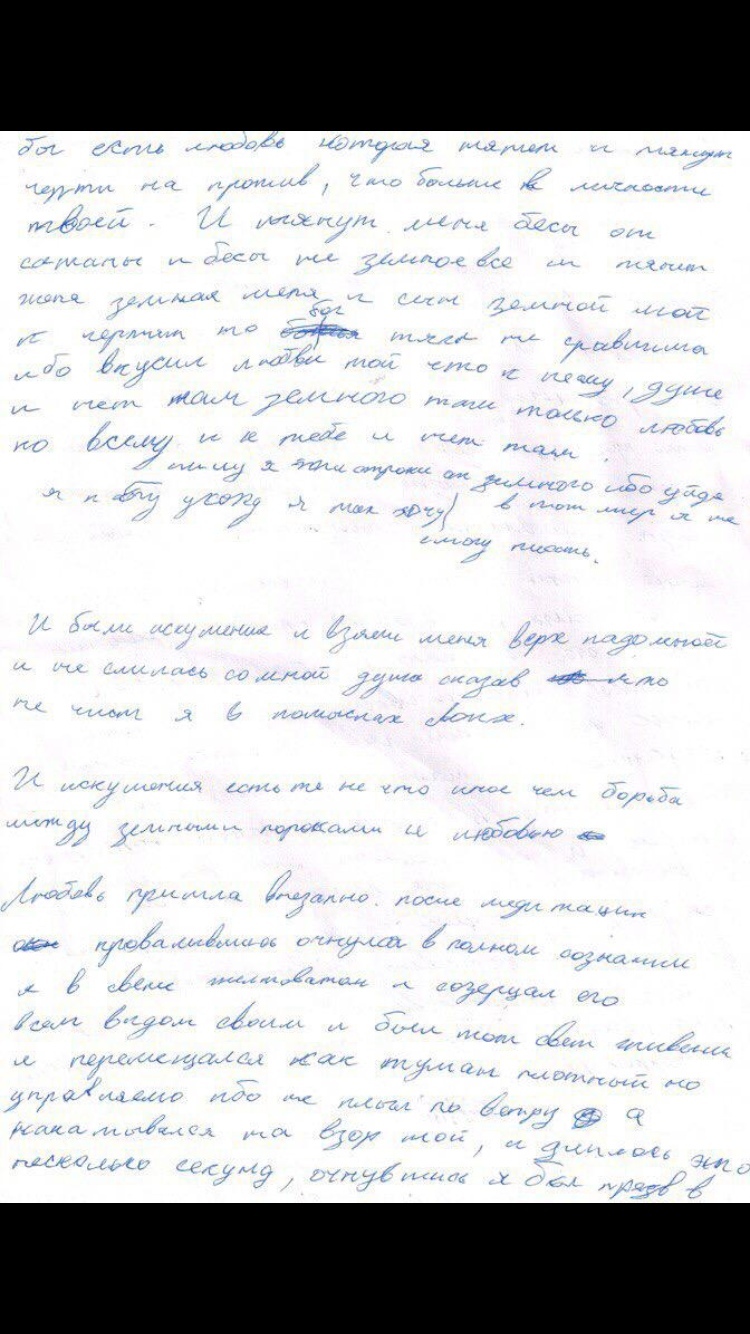 бог есть любовь которая тянет и тянут
черти на против, что больше в личности
твоей. И тянут меня бесы от
сатаны и бесы не земное все и тянит
жена земная меня и сын земной мой
к чертям то бог тяга не сравнима
ибо вкусил любви той что к нему, душе
и нет там земного там только любовь
ко всему и к тебе и нет там.
пишу я эти строки от земного ибо уйдя
я к богу ухожу я так хочу} в тот мир я не
смогу писать.
И были искушения и взяли меня верх надомной
и не слилась со мной душа сказав что
не чист я в помыслах своих.
И искушения есть те не что иное чем борьба
между земными пороками и любовью
Любовь пришла внезапно. после медитации
провалившись очнулся в полном сознании
я в свете желтоватом и созерцал его
всем видом своим и был тот свет
и перемещался как туман плотный но
управляемо ибо не плыл по ветру а
накатывался на взор мой, и длилось это
несколько секунд, очнувшись я был в